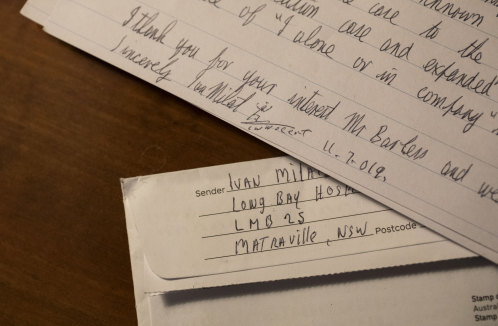 unknown
case to the
case and expanded
of "I alone or in company"
I thank you for your interest Mr Barless and
Sincerely Ivan Milat
innocent
11.7.019.
Sender IVAN MILA
LONG BAY HOS
LMB 25
MATRAVILLE, NSW Postcode
Stamp
Austra
Stamp